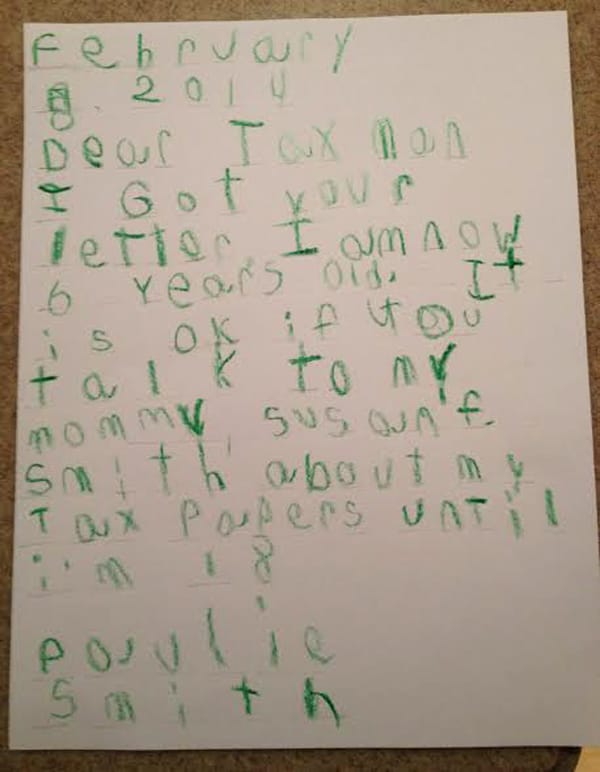 February
8. 2014
Dear Tax man
I Got your
letter I am now
6 Years old. It
is ok if you
talk to my
mommy, susan f.
Smith about my
Tax Papers until
i'm 18
paulie
Smith